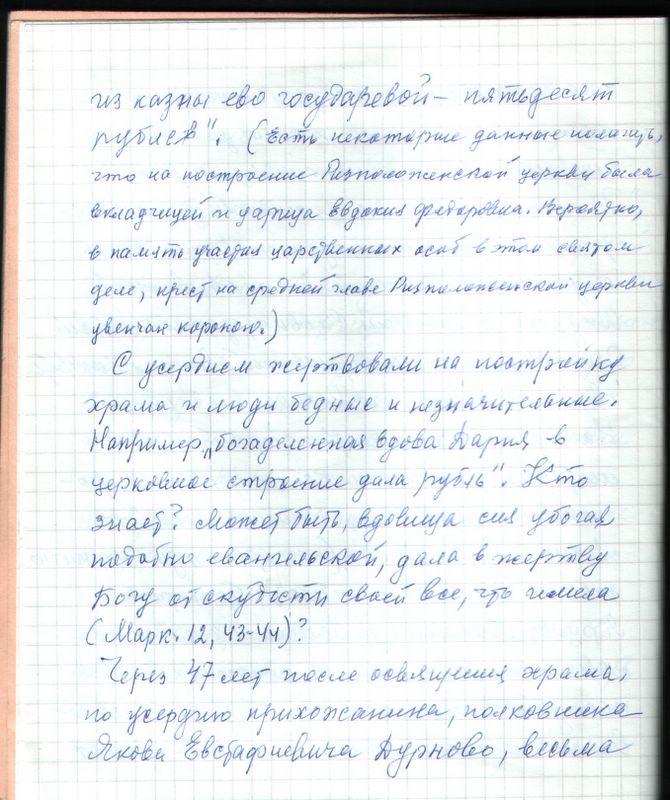 из казны ево государевой – пятьдесят
рублев". (Есть некоторые данные полагать,
что на построение Ризположенской церкви была
вкладчицей и царица Евдокия Федоровна. Вероятно,
в память участия царственных особ в этом святом
деле, крест на средней главе Ризположенской церкви
увенчан короною.)
С усердием жертвовали на постройку
храма и люди бедные и незначительные.
Например, „богаделенная вдова Дария в
церковное строение дала рубль". Кто
знает? Может быть, вдовица сия убогая,
подобно евангельской, дала в жертву
Богу от скудости своей все, что имела
(Марк. 12, 43-44)?
Через 47 лет после освящения храма,
по усердию прихожанина, полковника
Якова Евстафиевича Дурново, весьма